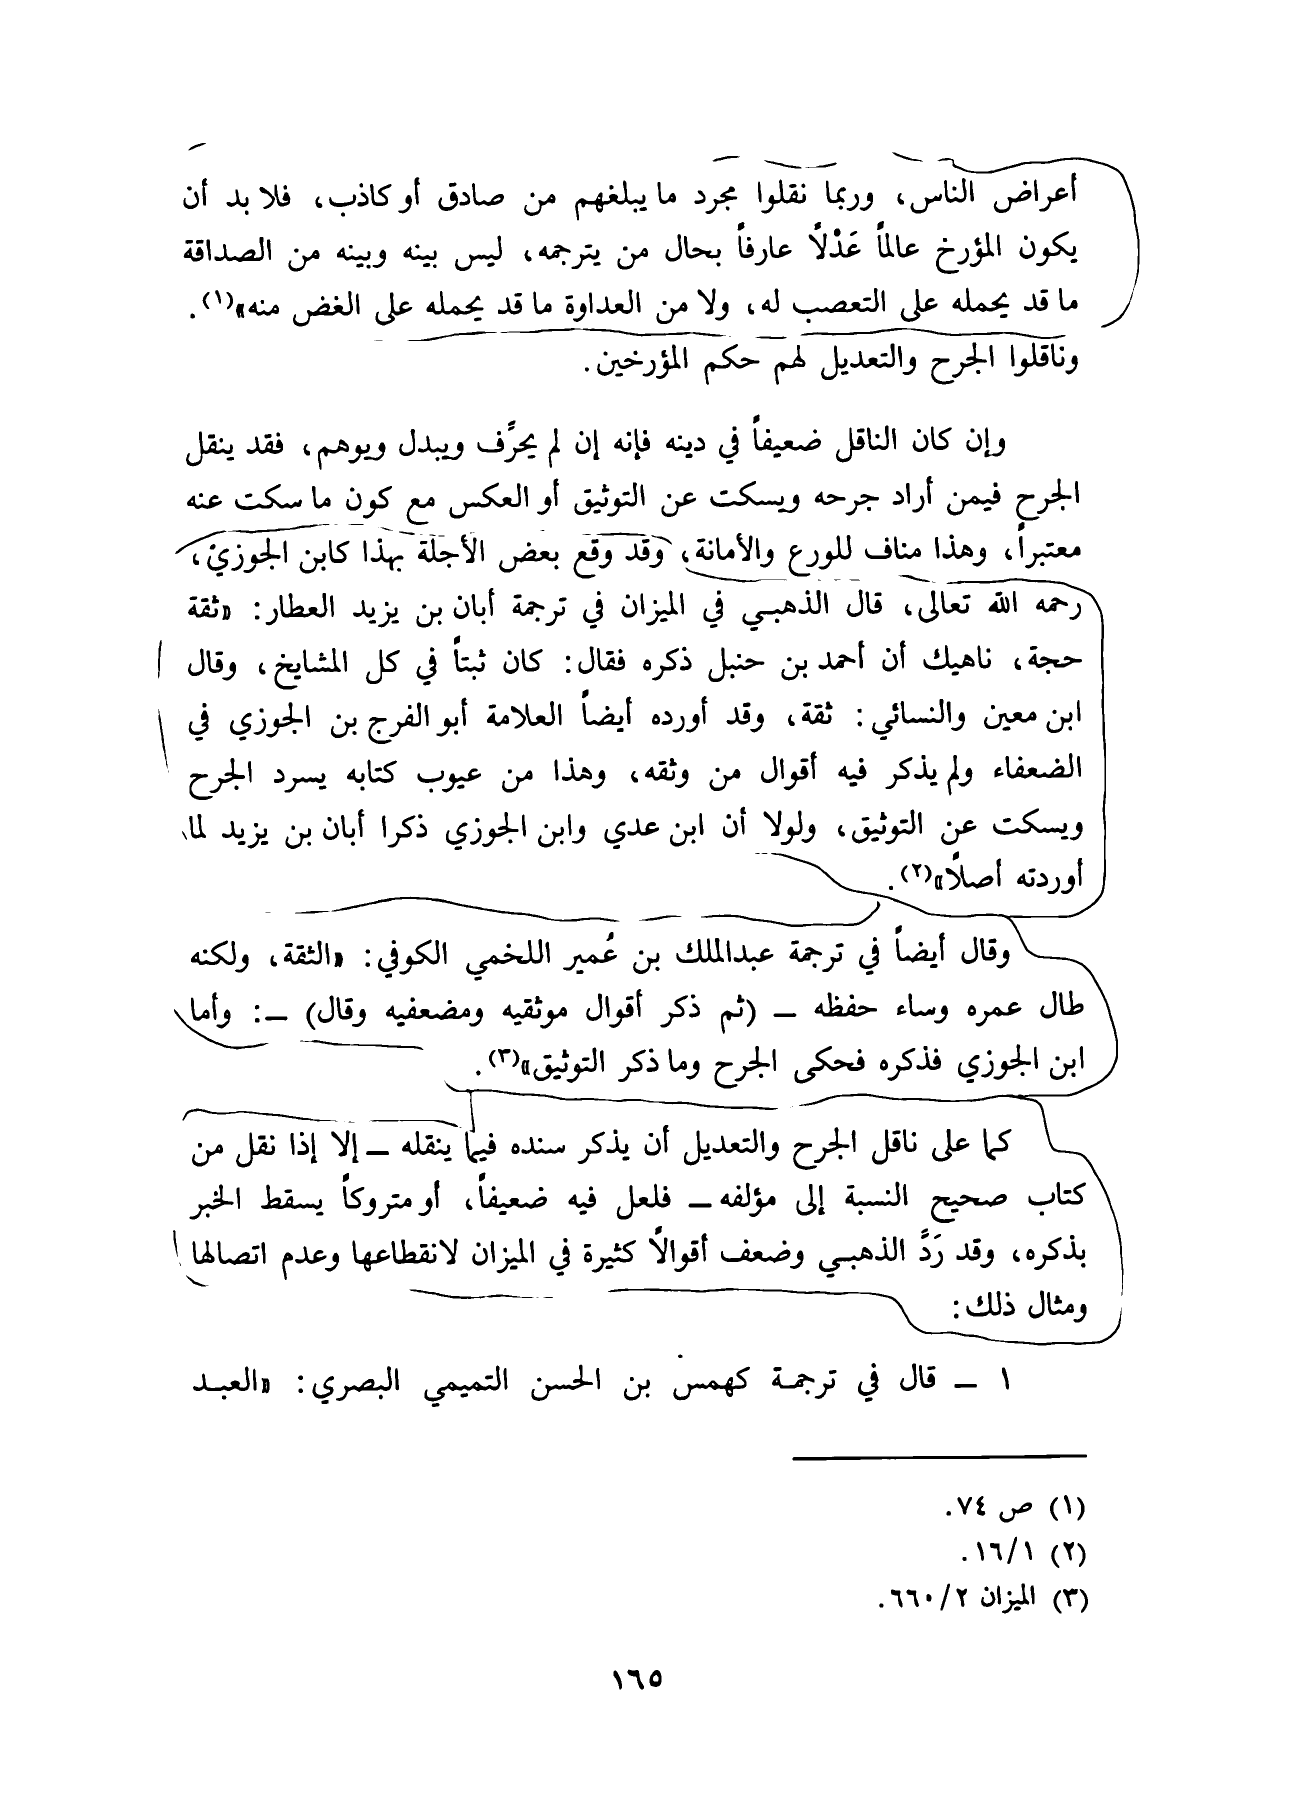 أعراض الناس، وربما نقلوا مجرد ما يبلغهم من صادق أو كاذب، فلا بد أن
يكون المؤرخ عالماً عَدْلاً عارفاً بحال من يترجمه، ليس بينه وبينه من الصداقة
ما قد يحمله على التعصب له، ولا من العداوة ما قد يحمله على الغض منه»(١).
وناقلوا الجرح والتعديل لهم حكم المؤرخين.
وإن كان الناقل ضعيفاً في دينه فإنه إن لم يحرِّف ويبدل ويوهم، فقد ينقل
الجرح فيمن أراد جرحه ويسكت عن التوثيق أو العكس مع كون ما سكت عنه
معتبراً، وهذا مناف للورع والأمانة، وقد وقع بعض الأجلة بهذا كابن الجوزي،
رحمه الله تعالى، قال الذهبي في الميزان في ترجمة أبان بن يزيد العطار: «ثقة
حجة، ناهيك أن أحمد بن حنبل ذكره فقال: كان ثبتاً في كل المشايخ، وقال
ابن معين والنسائي: ثقة، وقد أورده أيضاً العلامة أبو الفرج بن الجوزي في
الضعفاء ولم يذكر فيه أقوال من وثقه، وهذا من عيوب كتابه يسرد الجرح
ويسكت عن التوثيق، ولولا أن ابن عدي وابن الجوزي ذكرا أبان بن يزيد لما
أوردته أصلاً»(٢).
وقال أيضاً في ترجمة عبدالملك بن عُمير اللخمي الكوفي: «الثقة، ولكنه
طال عمره وساء حفظه – (ثم ذكر أقوال موثقيه ومضعفيه وقال) –: وأما
ابن الجوزي فذكره فحكى الجرح وما ذكر التوثيق»(٣).
كما على ناقل الجرح والتعديل أن يذكر سنده فيما ينقله – إلا إذا نقل من
كتاب صحيح النسبة إلى مؤلفه – فلعل فيه ضعيفاً، أو متروكاً يسقط الخبر
بذكره، وقد رَدَّ الذهبي وضعف أقوالاً كثيرة في الميزان لانقطاعها وعدم اتصالها
ومثال ذلك:
١ – قال في ترجمة كهمس بن الحسن التميمي البصري: «العبد
(١) ص ٧٤.
(٢) ١٦/١.
(٣) الميزان ٦٦٠/٢.
١٦٥